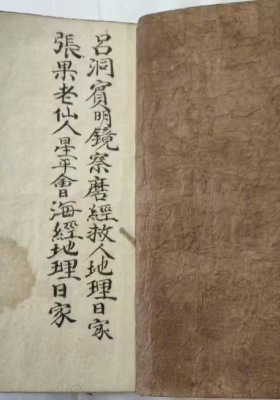 呂洞賓明鏡察磨經救人地理日家
張果老仙人星平會海經地理日家